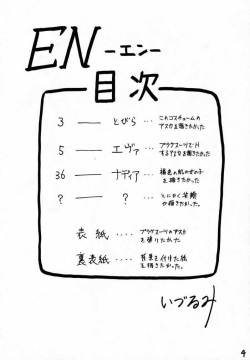 EN
ーエンー
目次
3 ー とびら … このコスチュームの
アスカを描きたかった
5 ー エヴァ … プラグスーツでH
するアスカを描きたかった
36 ー ナディア … 褐色の肌の女の子
を描きたかった
? ー ? … とにかく
描きたかった。
表紙 …. プラグスーツのアスカ
を塗りたかった
裏表紙 …. 背景を付けた紙
を描きたかった。
いづるみ
4